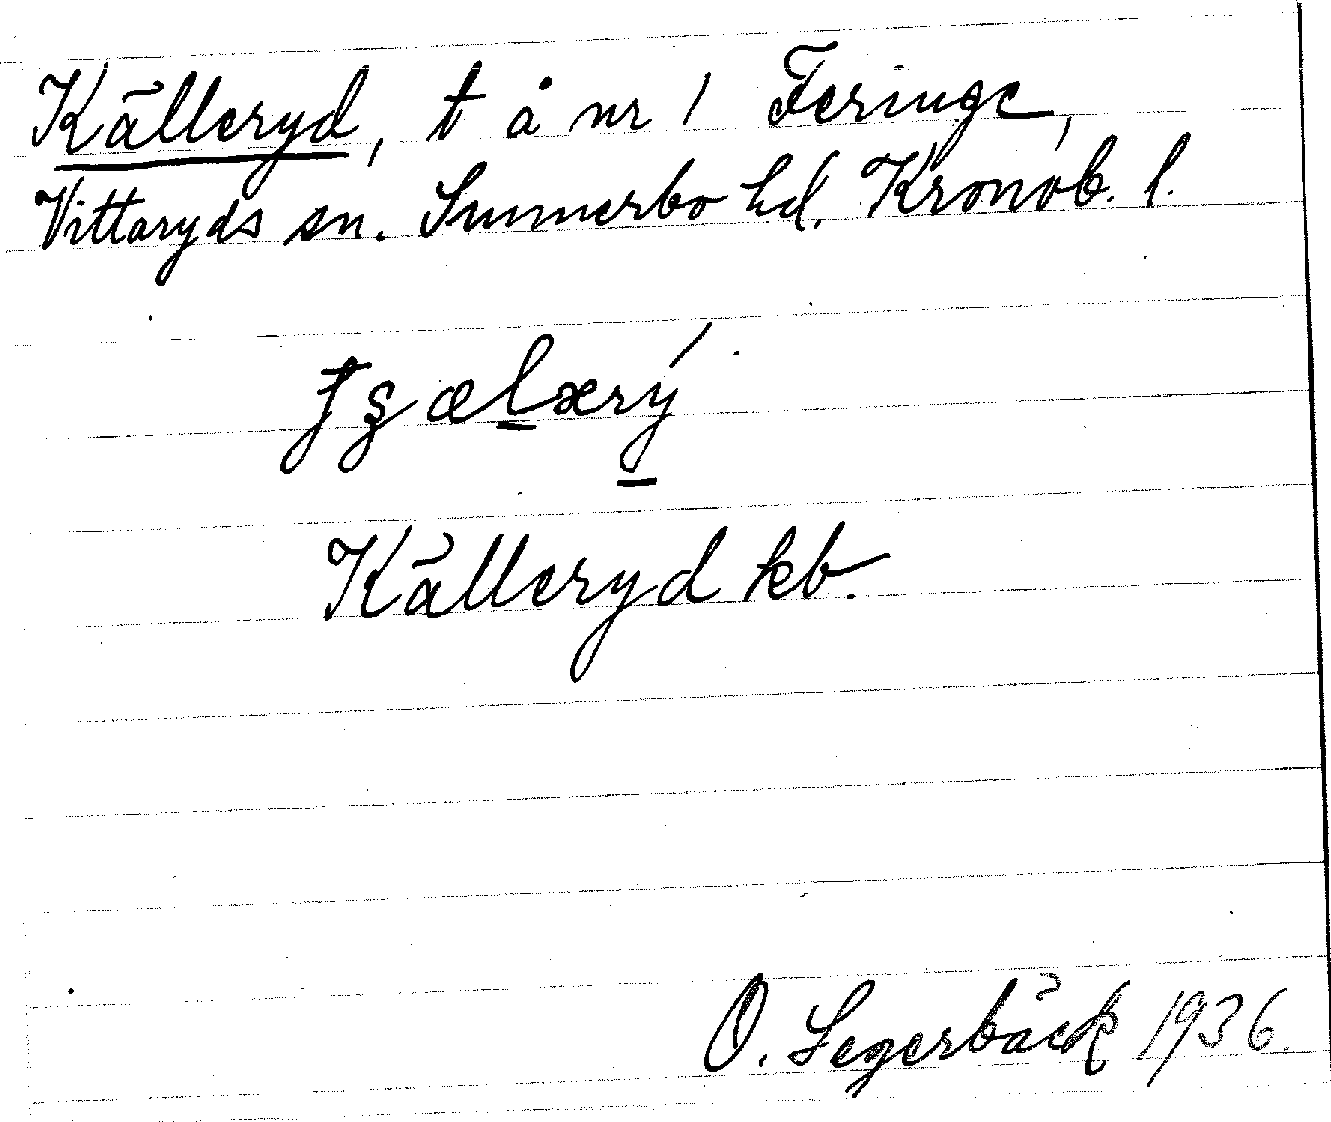 Källeryd, t å nr 1 Feringe,
Vittaryds sn. Sunnerbo hd. Kronob. l.
Källeryd kb.
O. Segerbäck 1936